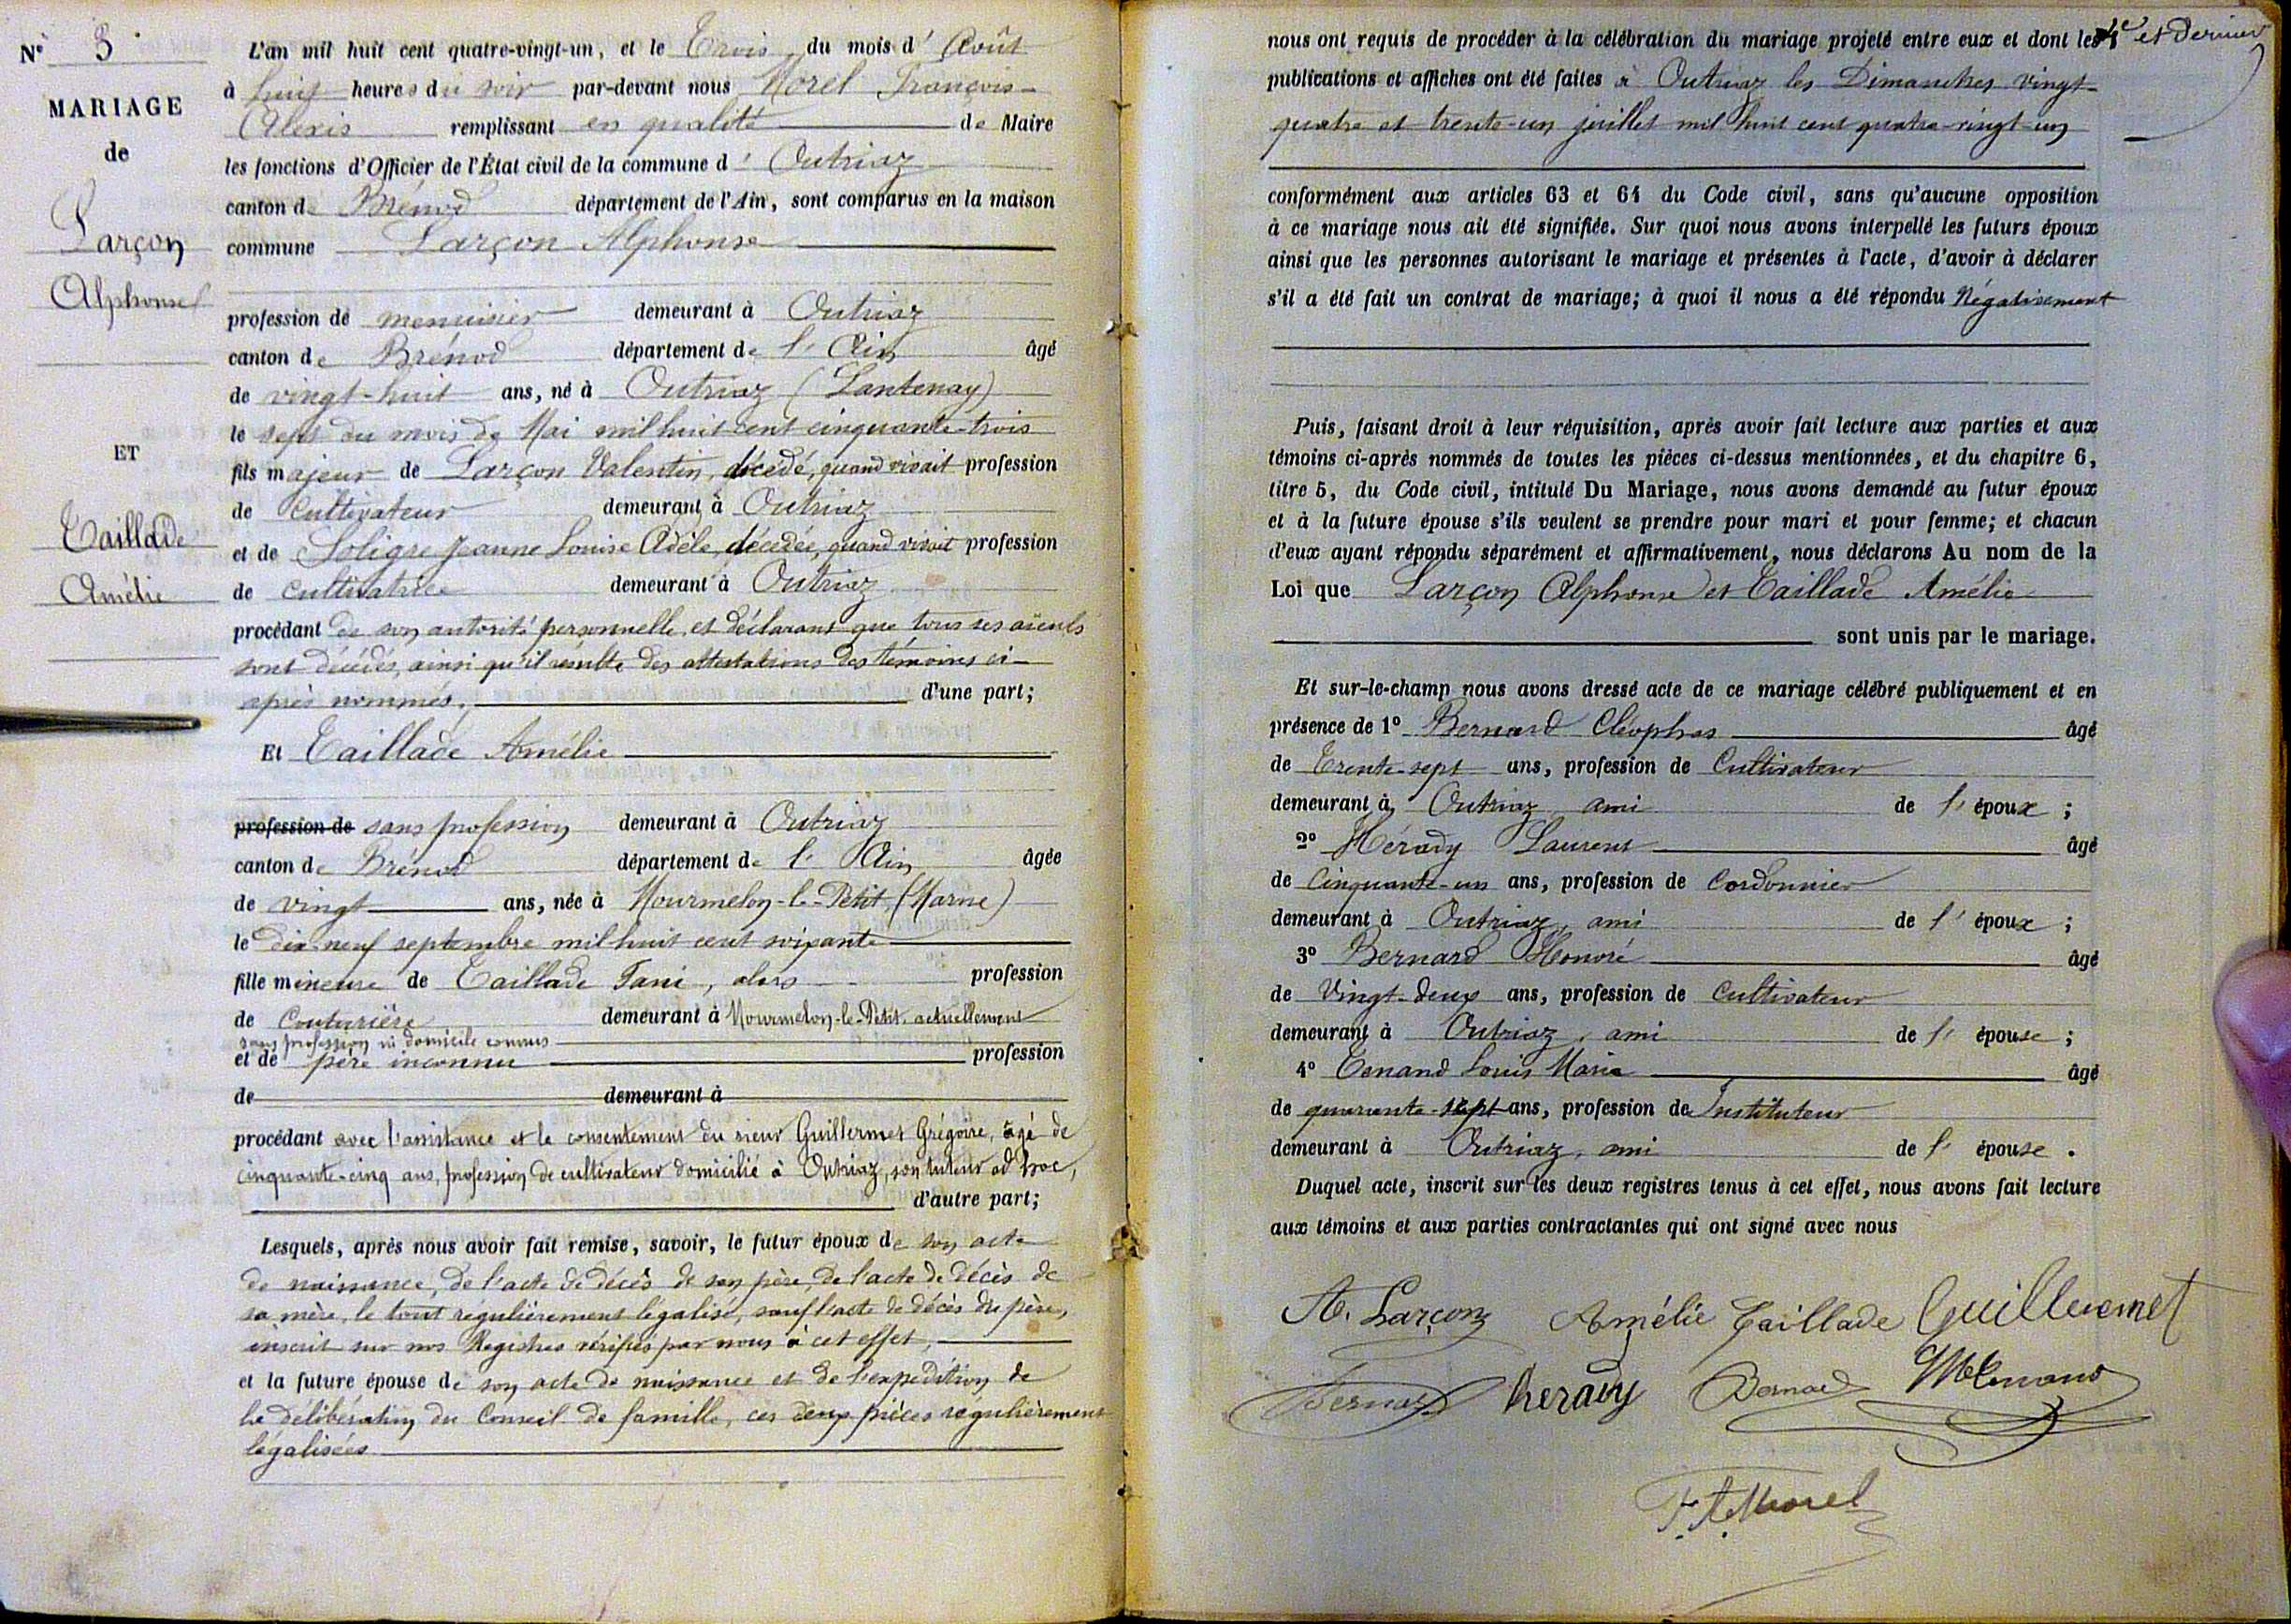 N° 3
MARIAGE
de
Larçon
Alphonse
ET
Taillade
Amélie
L'an mil huit cent quatre-vingt-un, et le Trois du mois d'Août
à huit heures du soir par-devant nous Morel François-
Alexis remplissant en qualité de Maire
les fonctions d'Officier de l'État civil de la commune d'Outriaz
canton de Brénod département de l'Ain, sont comparus en la maison
commune Larçon Alphonse
profession de menuisier demeurant à Outriaz
canton de Brénod département de l'Ain âgé
de vingt-huit ans, né à Outriaz (Lantenay)
le sept du mois de Mai mil huit cent cinquante-trois
fils majeur de Larçon Valentin, décédé, quand vivait profession
de Cultivateur demeurant à Outriaz
et de Soligre Jeanne Louise Adèle, décédée, quand vivait profession
de Cultivatrice demeurant à Outriaz
procédant de son autorité personnelle et déclarant que tous ses aïeuls
sont décédés, ainsi qu'il résulte des attestations des témoins ci-
après nommés, d'une part;
Et Taillade Amélie
profession de sans profession demeurant à Outriaz
canton de Brénod département de l'Ain âgée
de vingt ans, née à Mourmelon-le-Petit, (Marne)
le dix-neuf septembre mil huit cent soixante
fille mineure de Taillade Fani, alors profession
de Couturière demeurant à Mourmelon-le-Petit, actuellement
sans profession ni domicile connus
et de père inconnu profession
de demeurant à
procédant avec l'assistance et le consentement du sieur Guillermet Grégoire, âgé de
cinquante-cinq ans, profession de cultivateur domicilié à Outriaz, son tuteur ad hoc,
d'autre part;
Lesquels, après nous avoir fait remise, savoir, le futur époux de son acte
de naissance, de l'acte de décès de son père, de l'acte de décès de
sa mère, le tout régulièrement légalisé, sauf l'acte de décès du père,
inscrit sur nos Registres vérifiés par nous à cet effet,
et la future épouse de son acte de naissance et de l'expédition de
la délibération du Conseil de famille, ces deux pièces régulièrement
légalisées
4e et dernier
nous ont requis de procéder à la célébration du mariage projeté entre eux et dont les
publications et affiches ont été faites à Outriaz les Dimanches vingt-
quatre et trente-un juillet mil huit cent quatre-vingt-un
conformément aux articles 63 et 64 du Code civil, sans qu'aucune opposition
à ce mariage nous ait été signifiée. Sur quoi nous avons interpellé les futurs époux
ainsi que les personnes autorisant le mariage et présentes à l'acte, d'avoir à déclarer
s'il a été fait un contrat de mariage; à quoi il nous a été répondu Négativement
Puis, faisant droit à leur réquisition, après avoir fait lecture aux parties et aux
témoins ci-après nommés de toutes les pièces ci-dessus mentionnées, et du chapitre 6,
titre 5, du Code civil, intitulé Du Mariage, nous avons demandé au futur époux
et à la future épouse s'ils veulent se prendre pour mari et pour femme; et chacun
d'eux ayant répondu séparément et affirmativement, nous déclarons Au nom de la
Loi que Larçon Alphonse et Taillade Amélie
sont unis par le mariage.
Et sur-le-champ nous avons dressé acte de ce mariage célébré publiquement et en
présence de 1° Bernard Cléophas âgé
de Trente-sept ans, profession de Cultivateur
demeurant à Outriaz, ami de l'époux ;
2° Hérady Laurent âgé
de Cinquante-un ans, profession de Cordonnier
demeurant à Outriaz, ami de l'époux ;
3° Bernard Honoré âgé
de Vingt-deux ans, profession de Cultivateur
demeurant à Outriaz, ami de l'épouse ;
4° Tenand Louis Marie âgé
de quarante-sept ans, profession de Instituteur
demeurant à Outriaz, ami de l'épouse .
Duquel acte, inscrit sur les deux registres tenus à cet effet, nous avons fait lecture
aux témoins et aux parties contractantes qui ont signé avec nous
A. Larçon Amélie Taillade Guillermet
Bernard herady Bernard
F. A. Morel